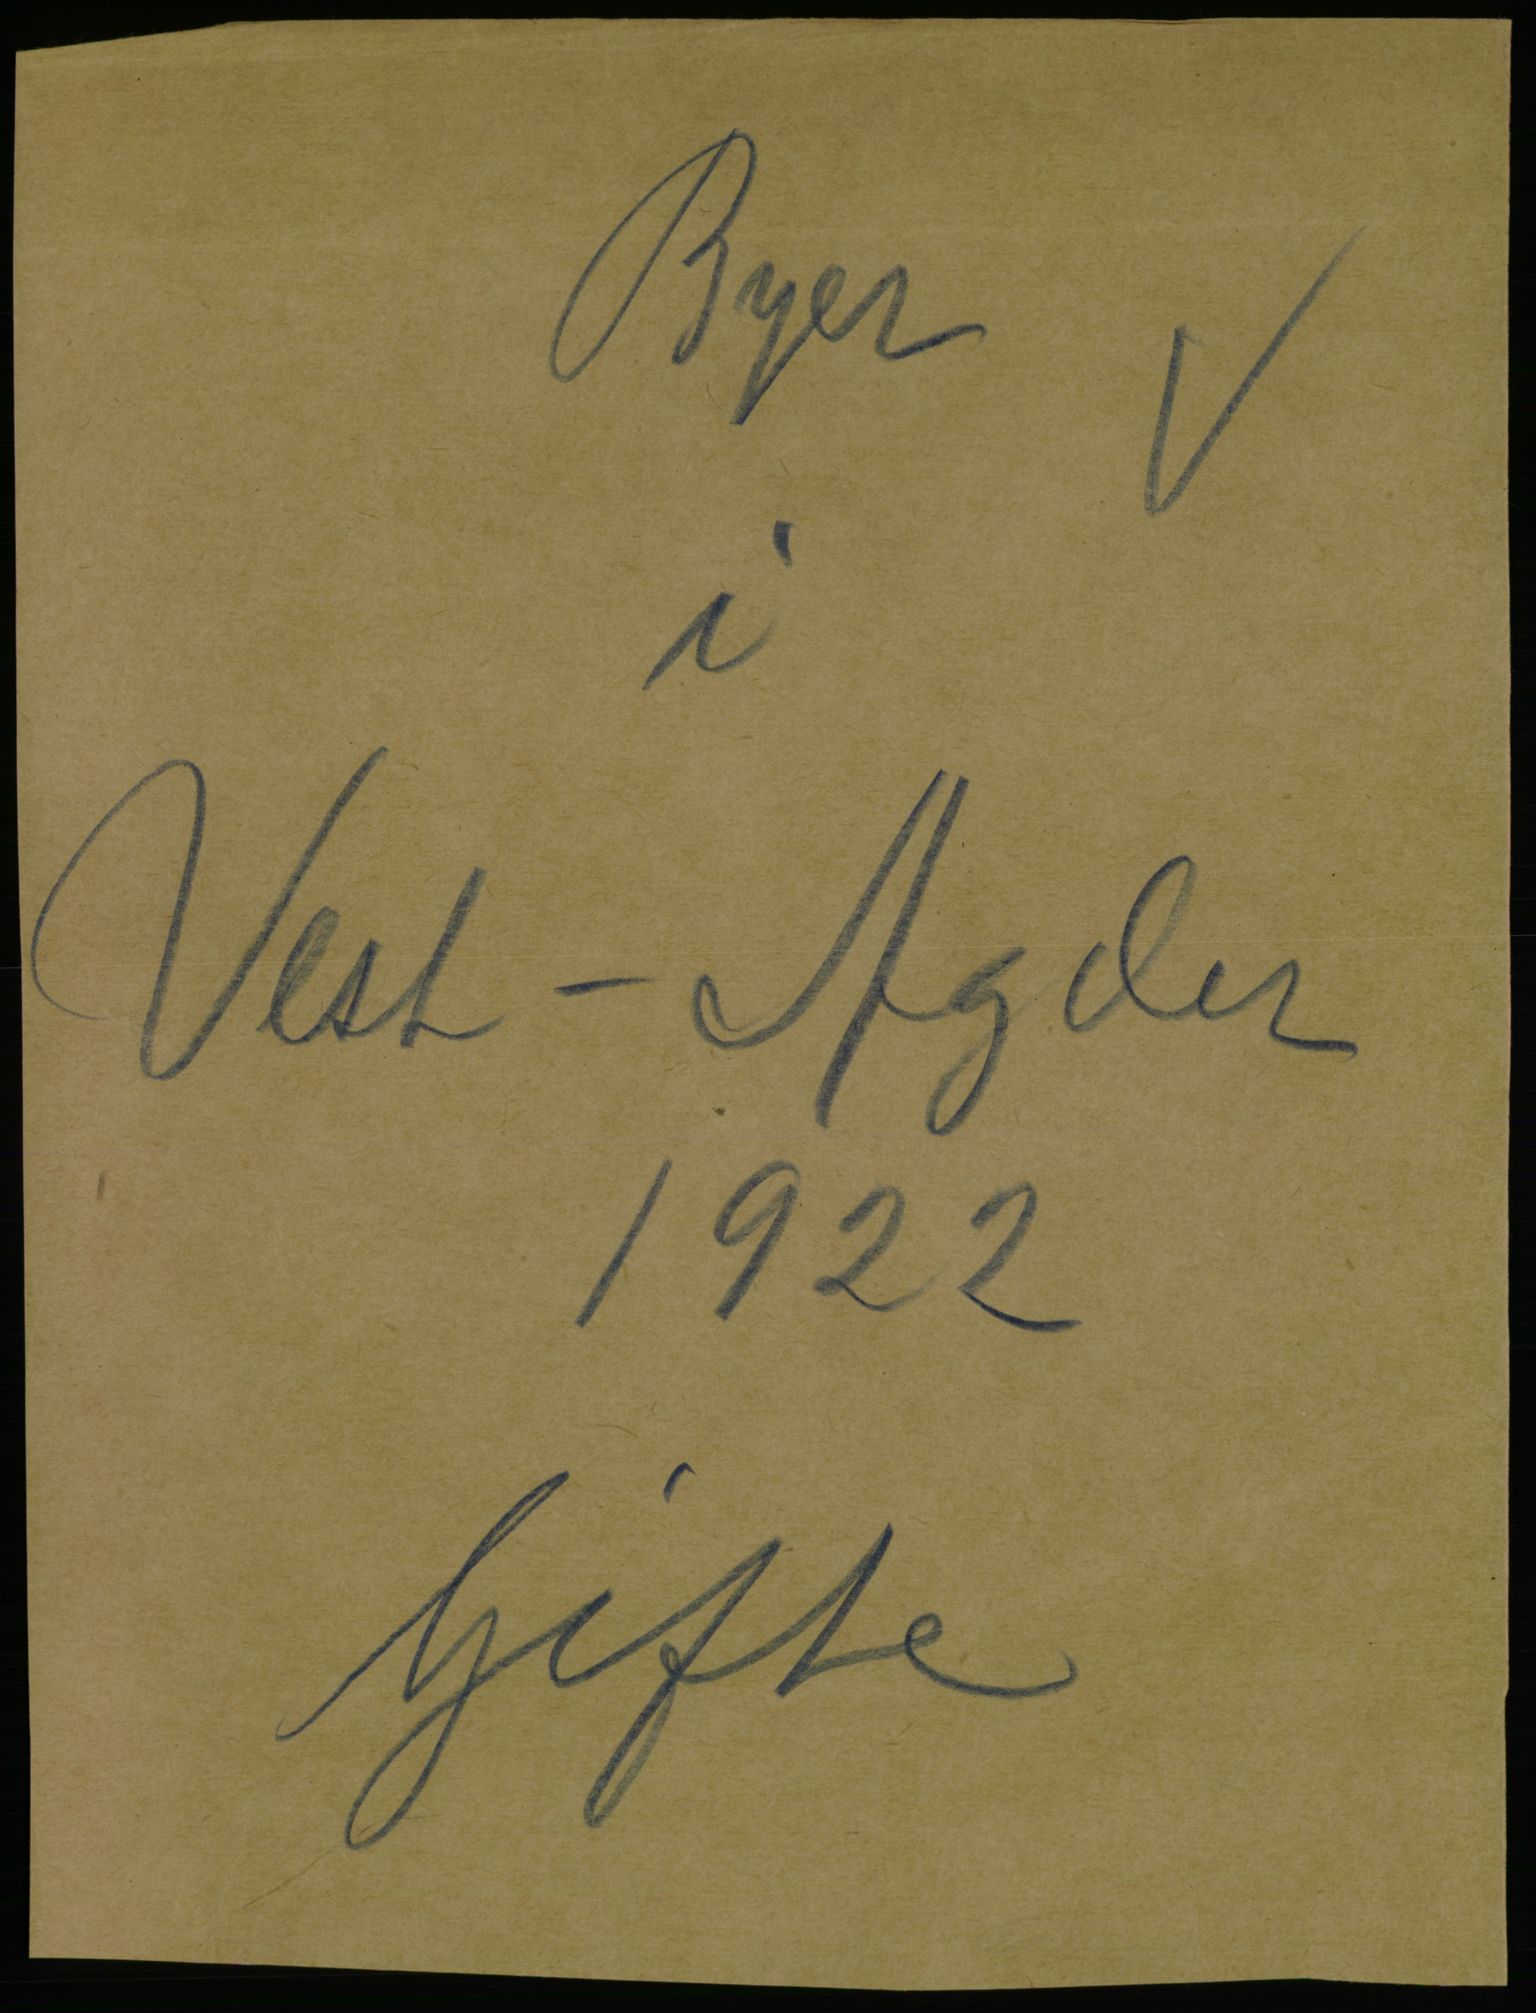 Byer
i
Vest-Agder
1922
Gifte